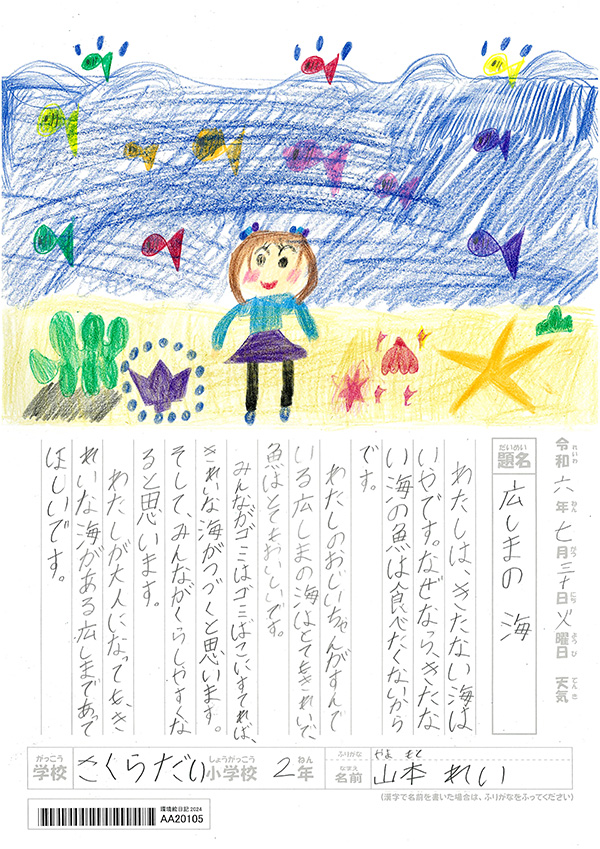 令和六年七月三十日火曜日 天気
れいわ ねん がつ にち ようび てんき
だいめい
題名 広しまの 海
わたしは、きたない海は
いやです。なぜなら、きたな
い海の魚は食べたくないから
です。
わたしのおじいちゃんがすんで
いる広しまの海はとてもきれいで、
魚はとてもおいしいです。
みんながゴミはゴミばこにすてれば、
きれいな海がつづくと思います。
そして、みんながくらしやすくな
ると思います。
わたしが大人になっても、き
れいな海がある広しまであって
ほしいです。
がっこう しょうがっこう ねん
学校 さくらだい小学校 2年
ふりがな やま もと
なまえ
名前 山本 れい
(漢字で名前を書いた場合は、ふりがなをふってください)
環境絵日記2024
AA20105